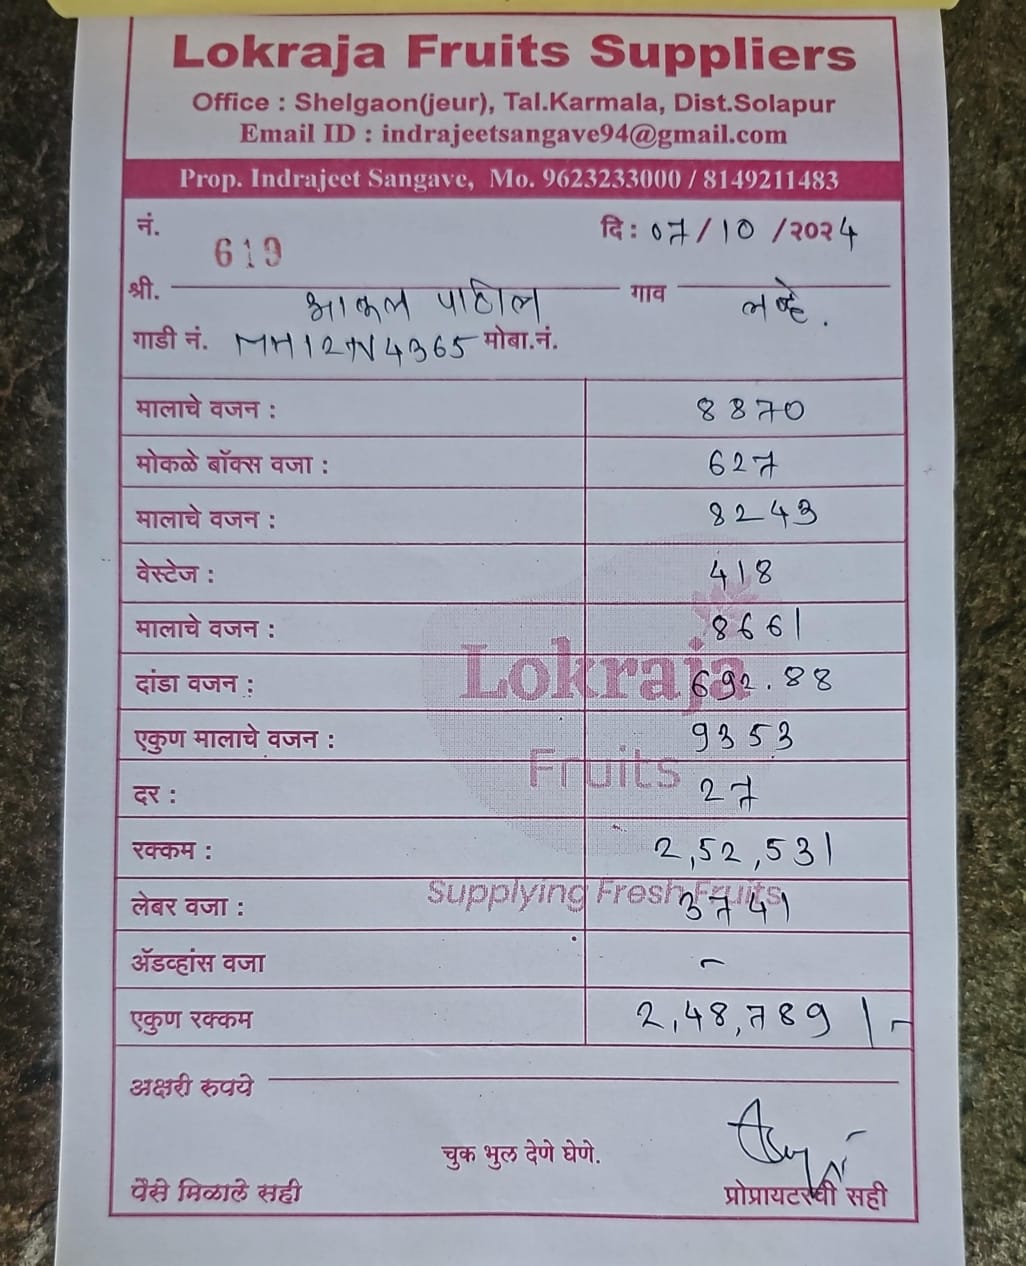 Lokraja Fruits Suppliers
Office : Shelgaon(jeur), Tal.Karmala, Dist.Solapur
Email ID : indrajeetsangave94@gmail.com
Prop. Indrajeet Sangave, Mo. 9623233000 / 8149211483
नं. 619 दि : 07/10/२०२4
श्री. पाटील गाव लव्हे.
गाडी नं. MH12 4365 मोबा.नं.
मालाचे वजन : 8870
मोकळे बॉक्स वजा : 627
मालाचे वजन : 8243
वेस्टेज : 418
मालाचे वजन : 8661
दांडा वजन : 692.88
एकुण मालाचे वजन : 9353
दर : 27
रक्कम : 2,52,531
लेबर वजा : 3741
ॲडव्हांस वजा -
एकुण रक्कम 2,48,789/-
Lokraja
Fruits
Supplying Fresh Fruits
अक्षरी रुपये
चुक भुल देणे घेणे.
पैसे मिळाले सही प्रोप्रायटरची सही